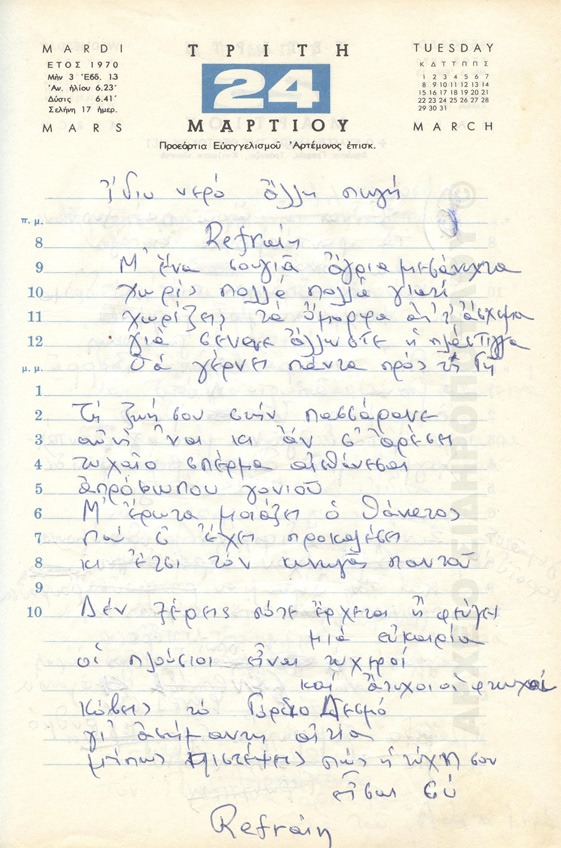 MARDI
ΤΡΙΤΗ
TUESDAY
ΕΤΟΣ 1970
Μὴν 3 Ἑβδ. 13
Ἀν. ἡλίου 6.23΄
Δύσις 6.41΄
Σελήνη 17 ἡμερ.
MARS
24
ΜΑΡΤΙΟΥ
Κ Δ Τ Τ Π Π Σ
1 2 3 4 5 6 7
8 9 10 11 12 13 14
15 16 17 18 19 20 21
22 23 24 25 26 27 28
29 30 31
MARCH
Προεόρτια Εὐαγγελισμοῦ Ἀρτέμονος ἐπισκ.
Ἴδιο νερό ἄλλη πηγή
π. μ.
Refrain
8
9 Μ' ἕνα σουγιᾶ ἄγρια μεσάνυχτα
10 χωρίς πολλά πολλά γιατί
11 χωρίζεις τά ὄμορφα ἀπ' τ' ἄσχημα
12 γιά σένανε ἡ πλάστιγγα
μ. μ. θά γέρνει πάντα πρός τή Γῆ
1
2 Τή ζωή σου στήν πασσάρανε
3 αὐτή εἶναι κι ἄν σ' ἀρέσει
4 τυχαῖο σπέρμα αἰσθάνεσαι
5 ἀπρόσωπου γονιοῦ
6 Μ' ἔρωτα μοιάζει ὁ θάνατος
7 πού σ' ἔχει προκαλέσει
8 κι ἔτσι τόν κυνηγᾶς παντοῦ
9
10 Δέν ξέρεις πότε ἔρχεται ἤ φεύγει
μιά εὐκαιρία
οἱ πλούσιοι εἶναι τυχεροί
καί ἄτυχοι οἱ φτωχοί
Κόβεις τό Γόρδιο Δεσμό
γι' ἀσήμαντη αἰτία
μήπως πιστέψεις πώς ἡ τύχη σου
εἶσαι ἐσύ
Refrain